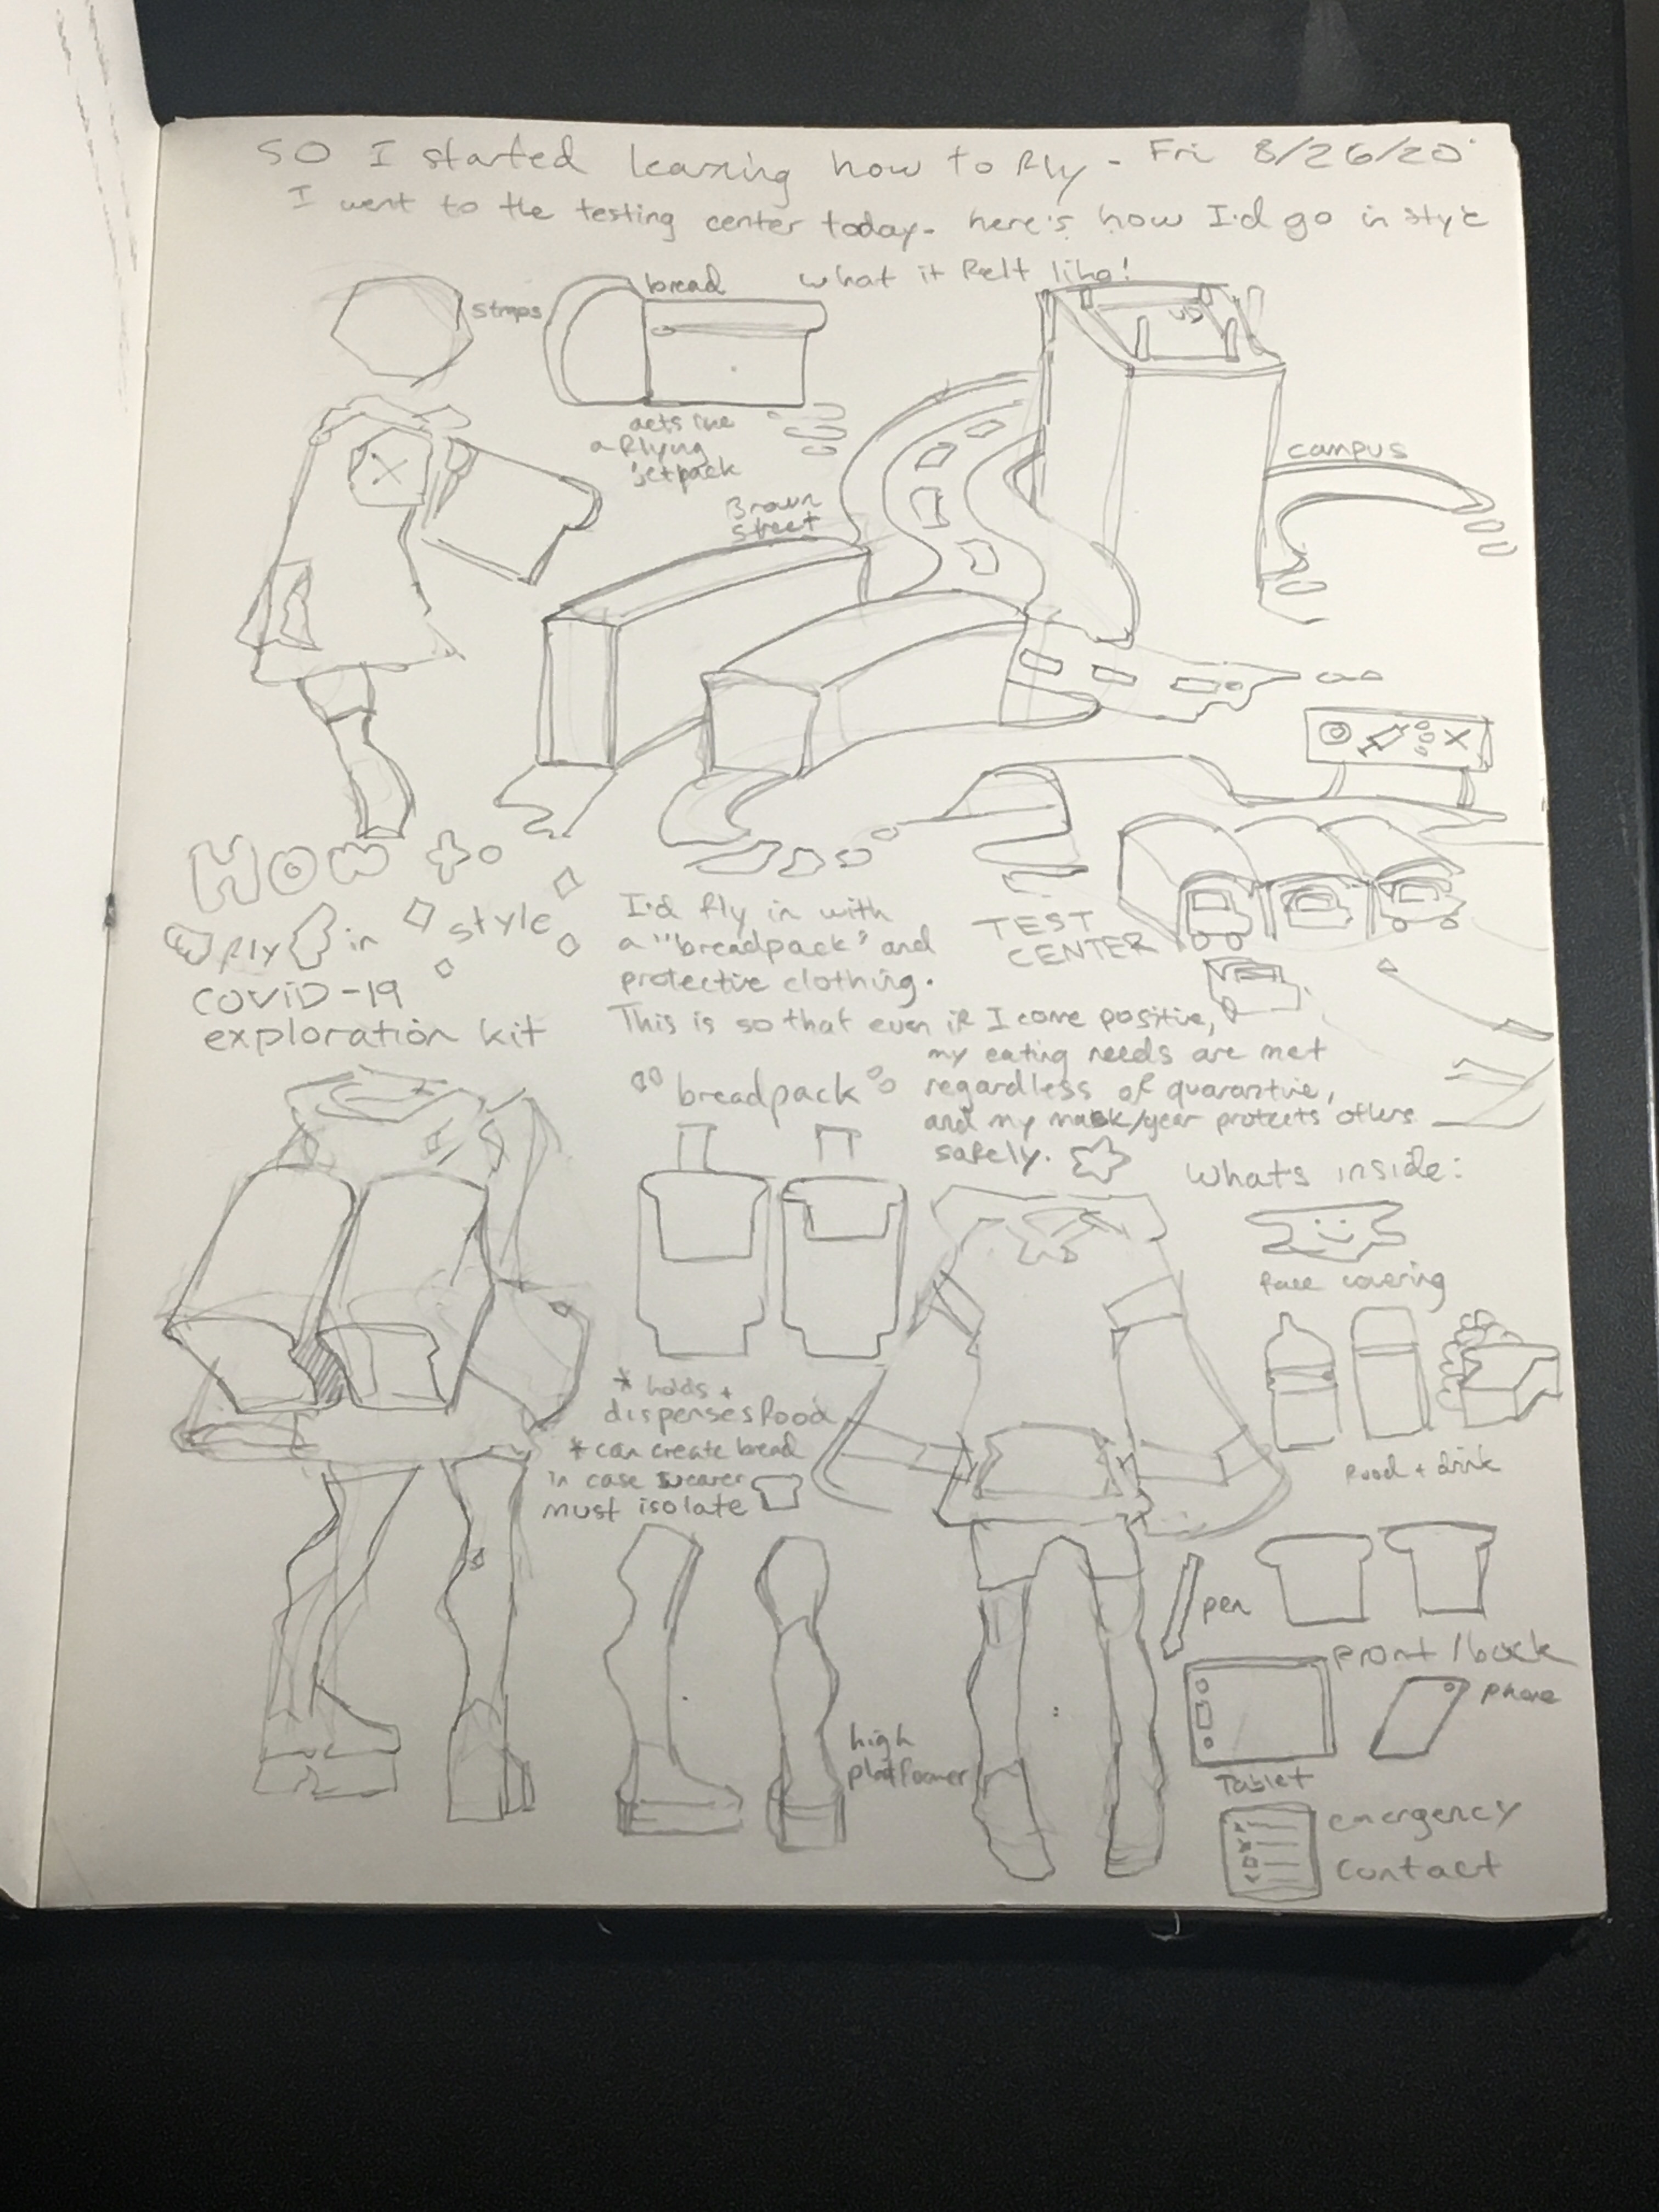 SO I started learning how to fly - Fri 8/26/20
I went to the testing center today. here's how I'd go in style
what it felt like!
straps
bread
acts like
a flying
jetpack
Brown
street
UD
campus
How to
fly in style
COVID-19
exploration kit
I'd fly in with
a "breadpack" and
protective clothing.
This is so that even if I come positive,
my eating needs are met
regardless of quarantine,
and my mask/gear protects others
safely.
TEST
CENTER
"breadpack"
* holds +
dispenses food
* can create bread
in case wearer
must isolate
high
platformer
Whats inside:
face covering
food + drink
pen
front/back
phone
Tablet
emergency
contact